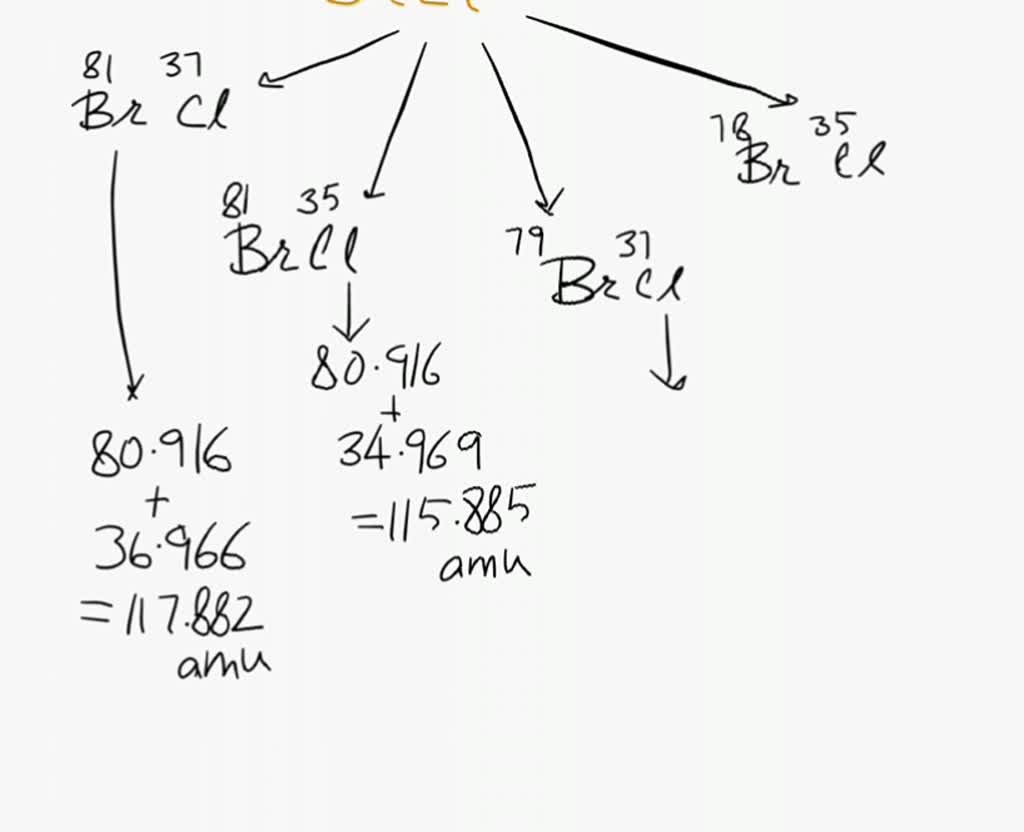 BrCl
81 37
Br Cl
78 35
Br Cl
81 35
BrCl
79 37
BrCl
80.916
+
34.969
=115.885
amu
80.916
+
36.966
=117.882
amu